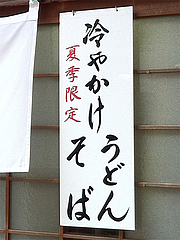 冷やかけ
うどん
そば
夏季限定